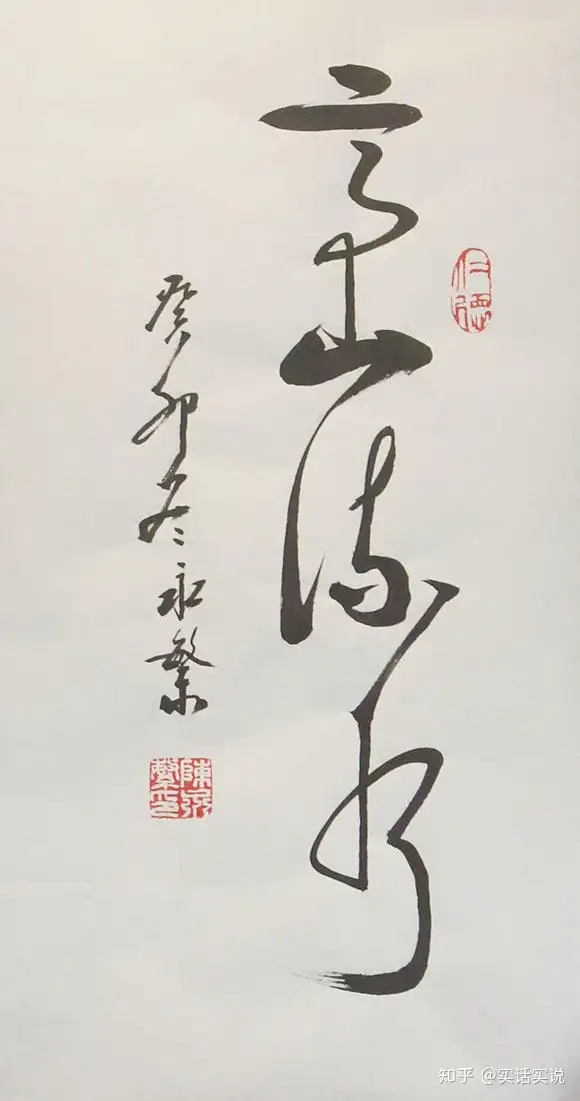 高山流水
癸卯冬永繁
陳永繁印
知乎 @实话实说